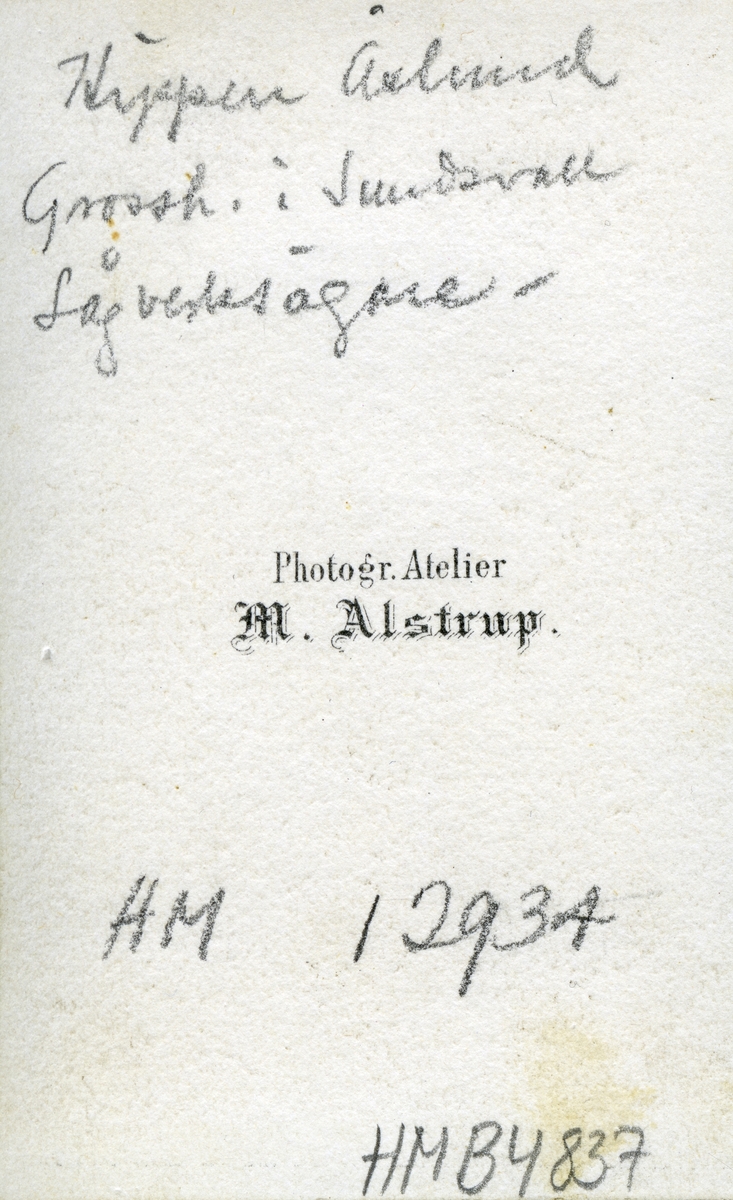 Åslund
Grossh. i Sundsvall
Sågverksägare –
Photogr. Atelier
M. Alstrup.
HM 12934
HMB4837